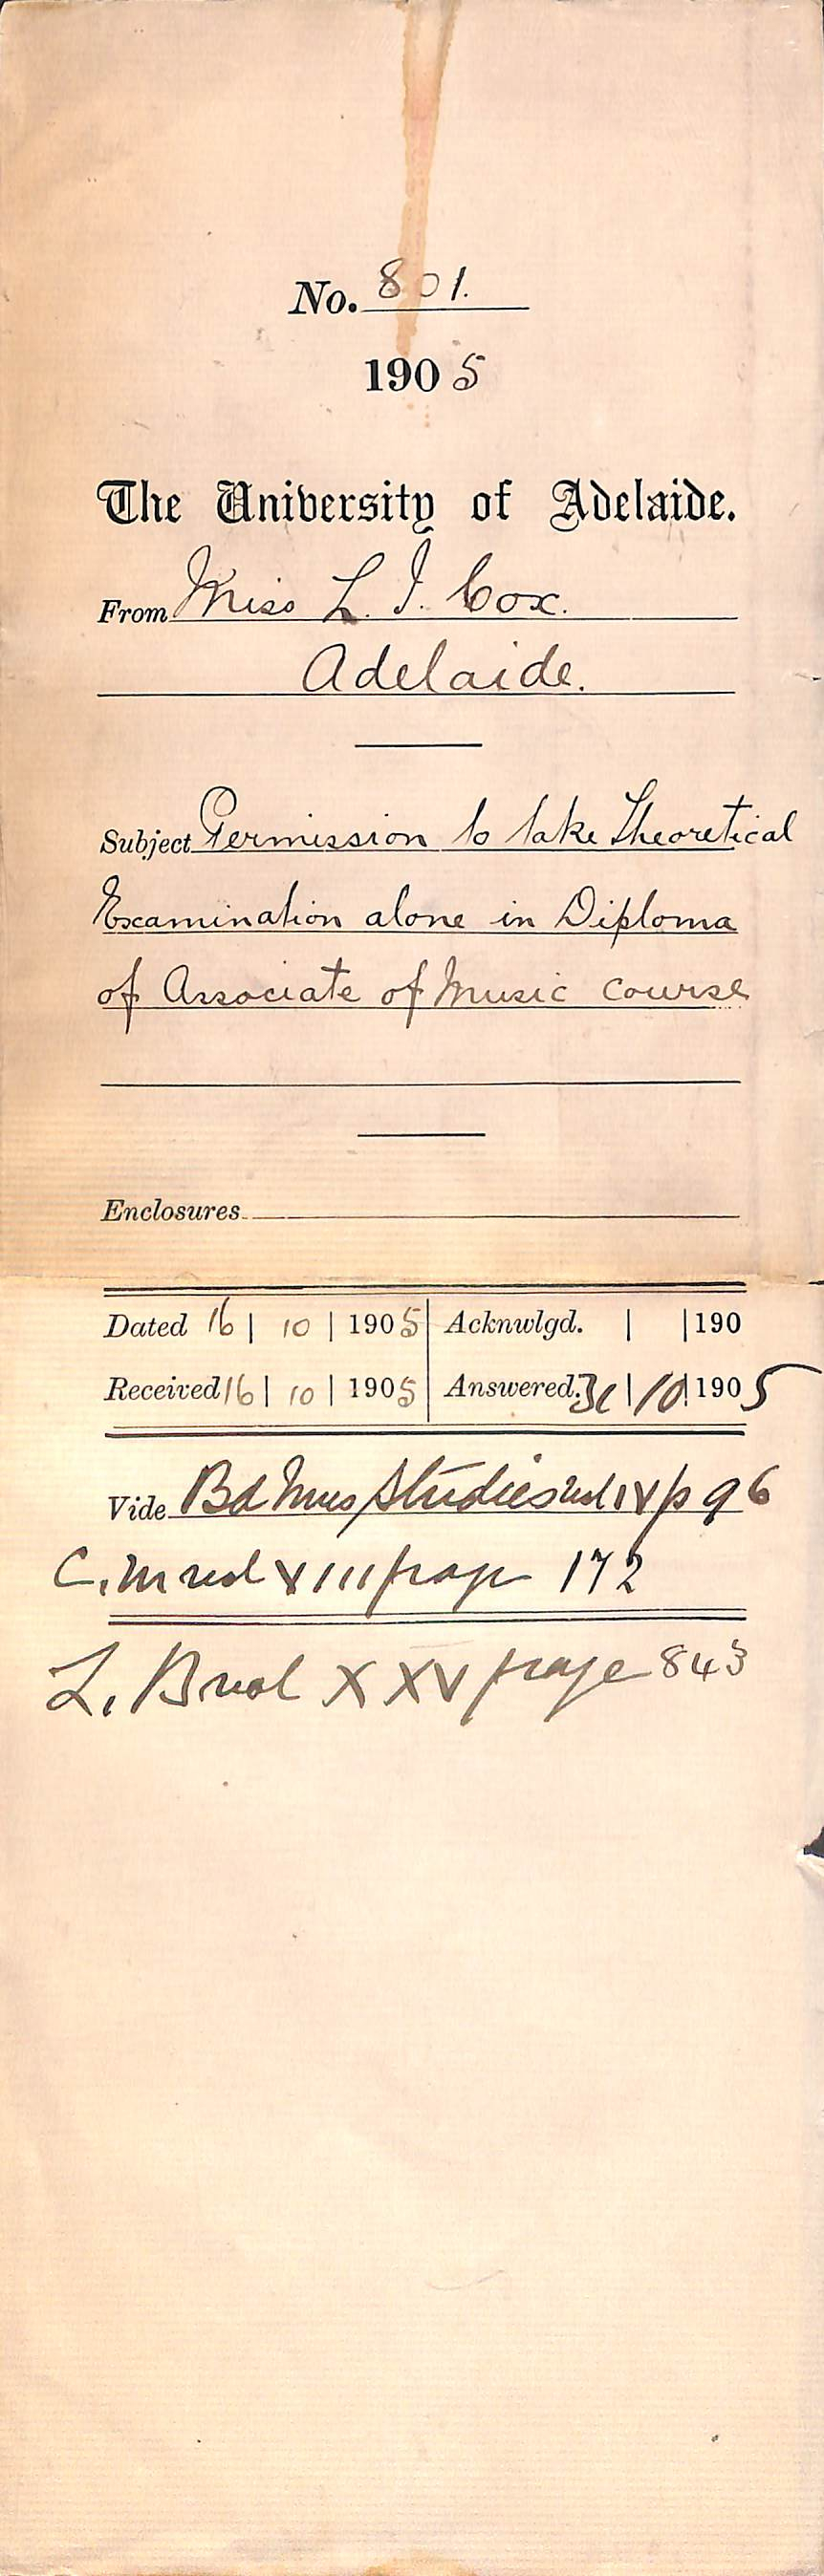 No. 801.
1905
The University of Adelaide.
From Miss L. I. Cox.
Adelaide.
Subject Permission to take Theoretical
Examination alone in Diploma
of Associate of Music Course
Enclosures
Dated 16 | 10 | 1905 Acknwlgd. | | 190
Received 16 | 10 | 1905 Answered. 31 | 10 | 1905
Vide Bd Mus Studies vol IV p 96
C. M vol XIII page 172
L. B vol XXV page 843